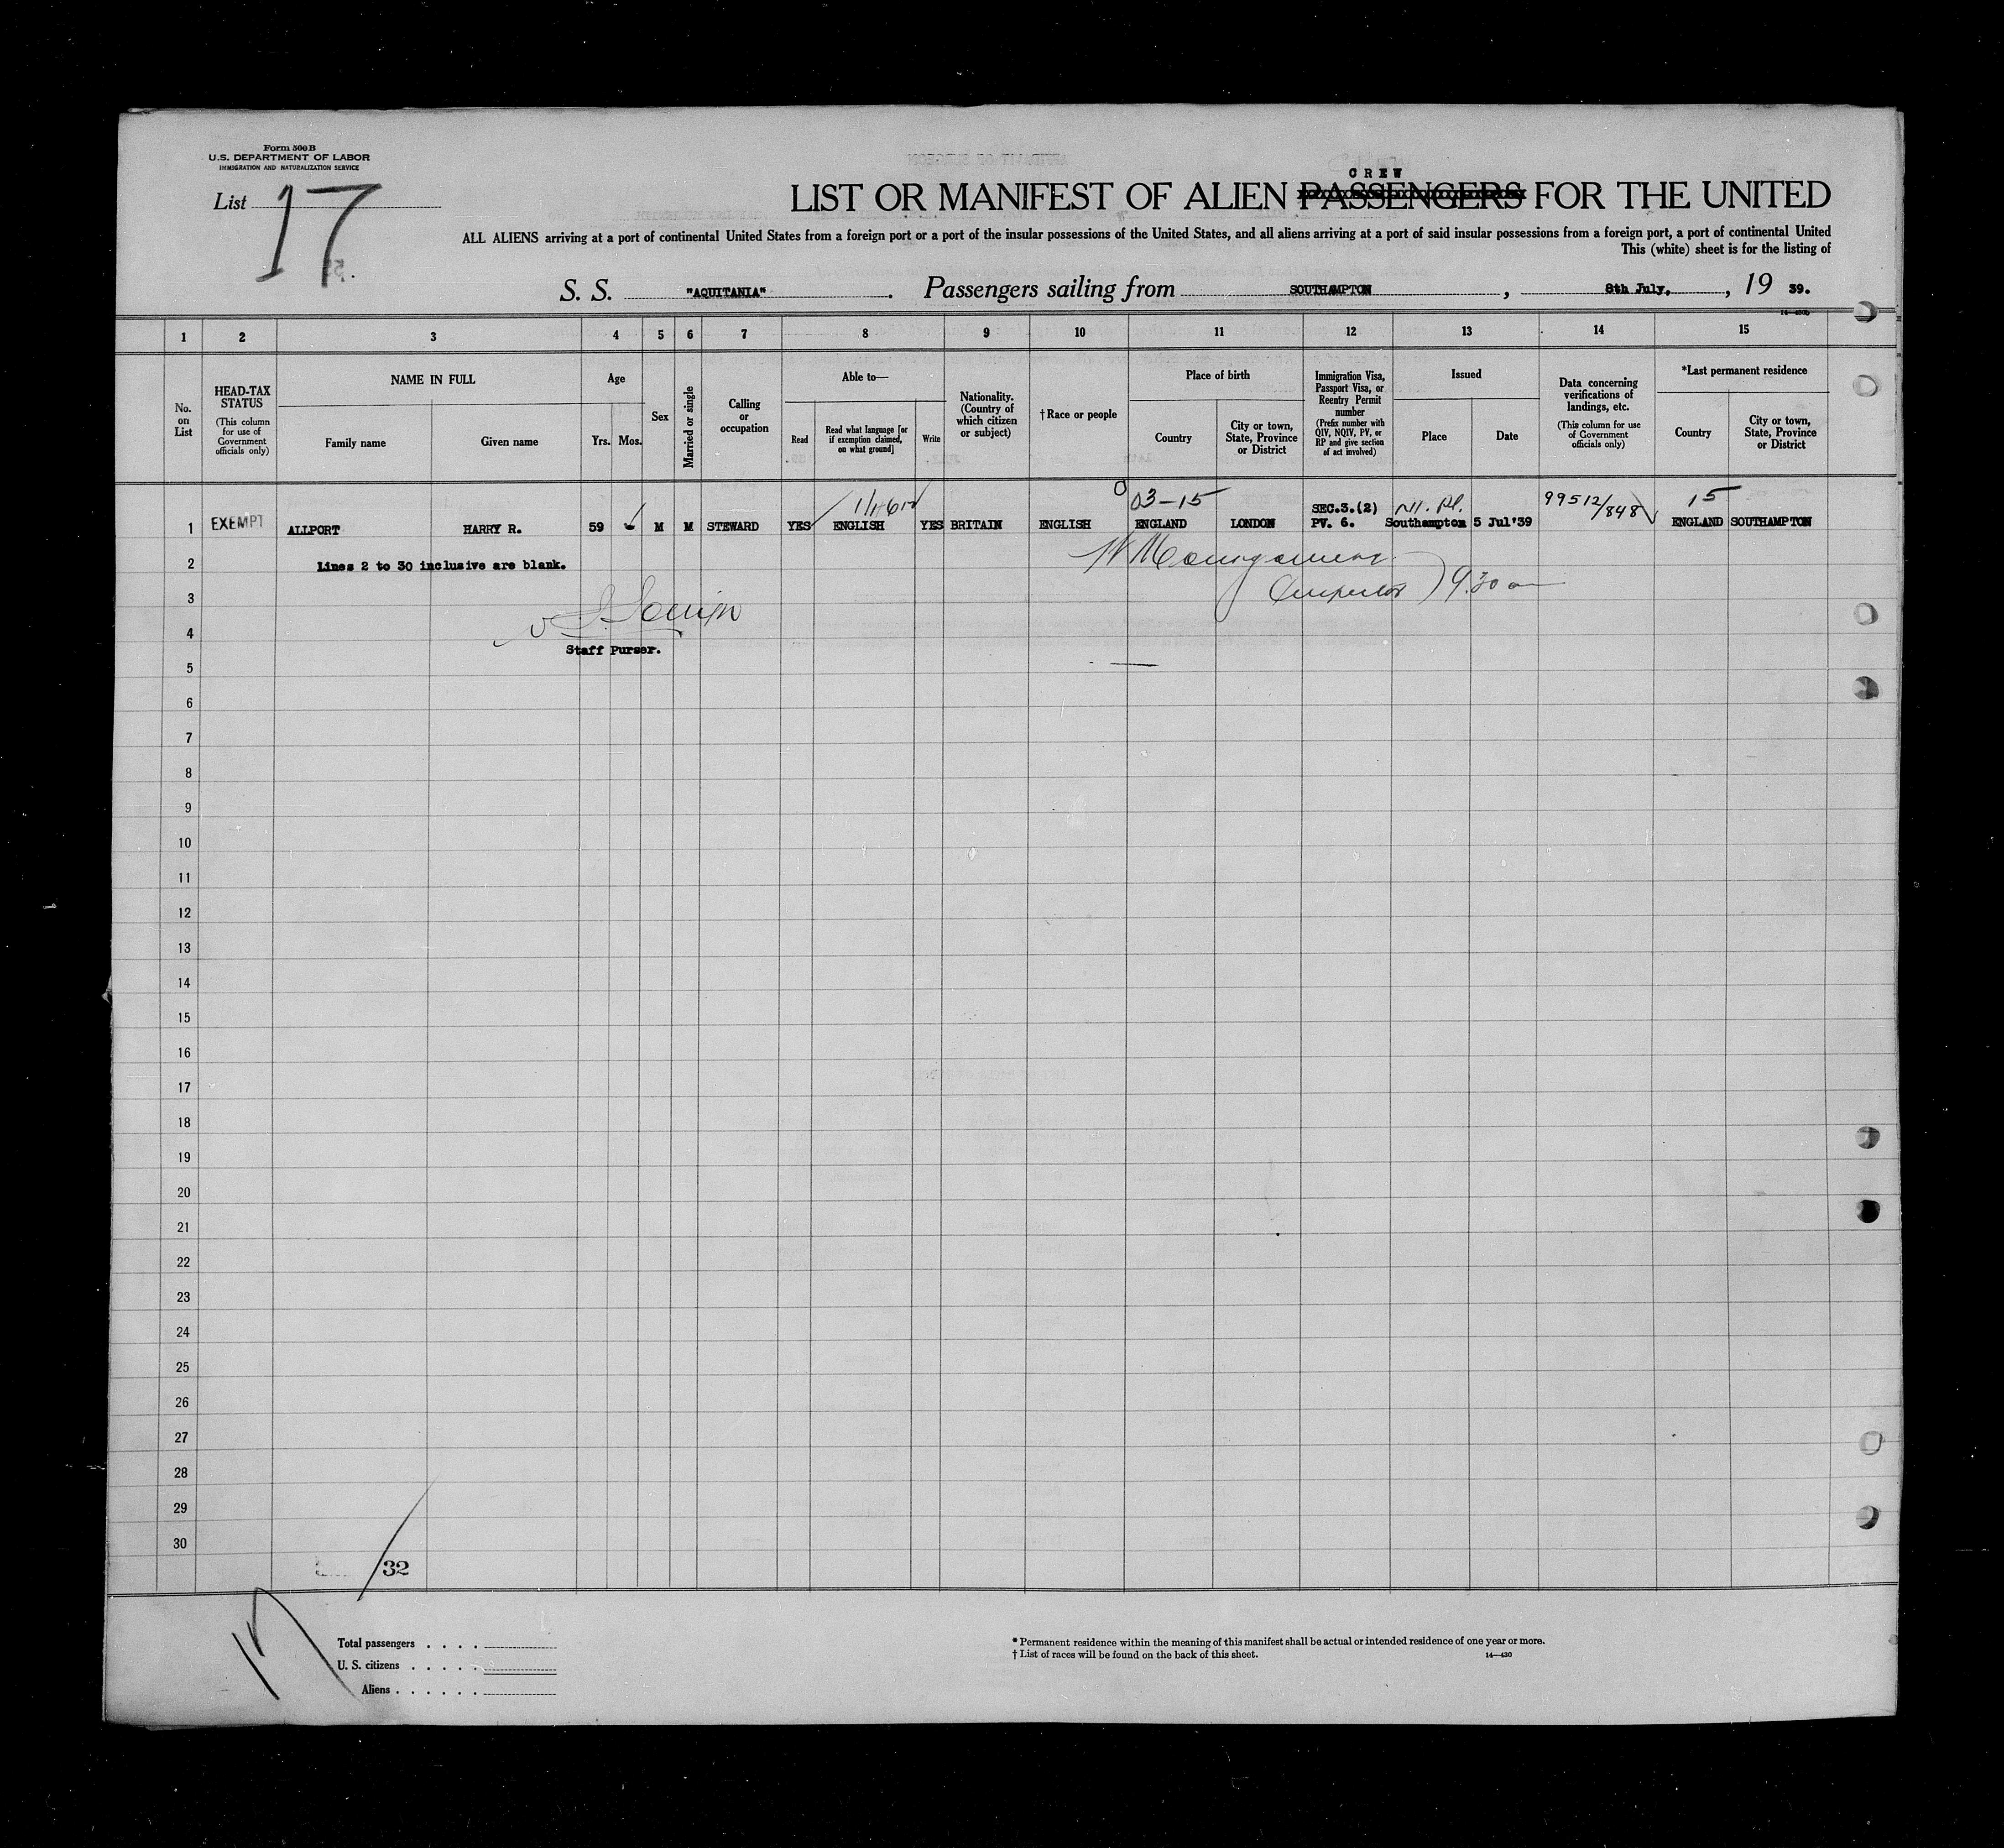 Form 500 B
U.S. DEPARTMENT OF LABOR
IMMIGRATION AND NATURALIZATION SERVICE
List 17
CREW
LIST OR MANIFEST OF ALIEN PASSENGERS FOR THE UNITED
ALL ALIENS arriving at a port of continental United States from a foreign port or a port of the insular possessions of the United States, and all aliens arriving at a port of said insular possessions from a foreign port, a port of continental United
This (white) sheet is for the listing of
S. S. "AQUITANIA". Passengers sailing from SOUTHAMPTON, 8th July, 19 39.
1 2 3 4 5 6 7 8 9 10 11 12 13 14 15
No. on List
HEAD-TAX STATUS
(This column for use of Government officials only)
NAME IN FULL
Family name Given name
Age
Yrs. Mos.
Sex
Married or single
Calling or occupation
Able to—
Read
Read what language [or if exemption claimed, on what ground]
Write
Nationality. (Country of which citizen or subject)
†Race or people
Place of birth
Country
City or town, State, Province or District
Immigration Visa, Passport Visa, or Reentry Permit number
(Prefix number with QIV, NQIV, PV, or RP and give section of act involved)
Issued
Place Date
Data concerning verifications of landings, etc.
(This column for use of Government officials only)
*Last permanent residence
Country
City or town, State, Province or District
03-15 SEC.3.(2) 99512/848 15
1 EXEMPT ALLPORT HARRY R. 59 M M STEWARD YES ENGLISH YES BRITAIN ENGLISH ENGLAND LONDON PV. 6. Southampton 5 Jul'39 ENGLAND SOUTHAMPTON
2 Lines 2 to 30 inclusive are blank.
3 Inspector 9.30 a
4
Staff Purser.
5
6
7
8
9
10
11
12
13
14
15
16
17
18
19
20
21
22
23
24
25
26
27
28
29
30
32
17
Total passengers
U. S. citizens
Aliens
* Permanent residence within the meaning of this manifest shall be actual or intended residence of one year or more.
† List of races will be found on the back of this sheet.
14—430